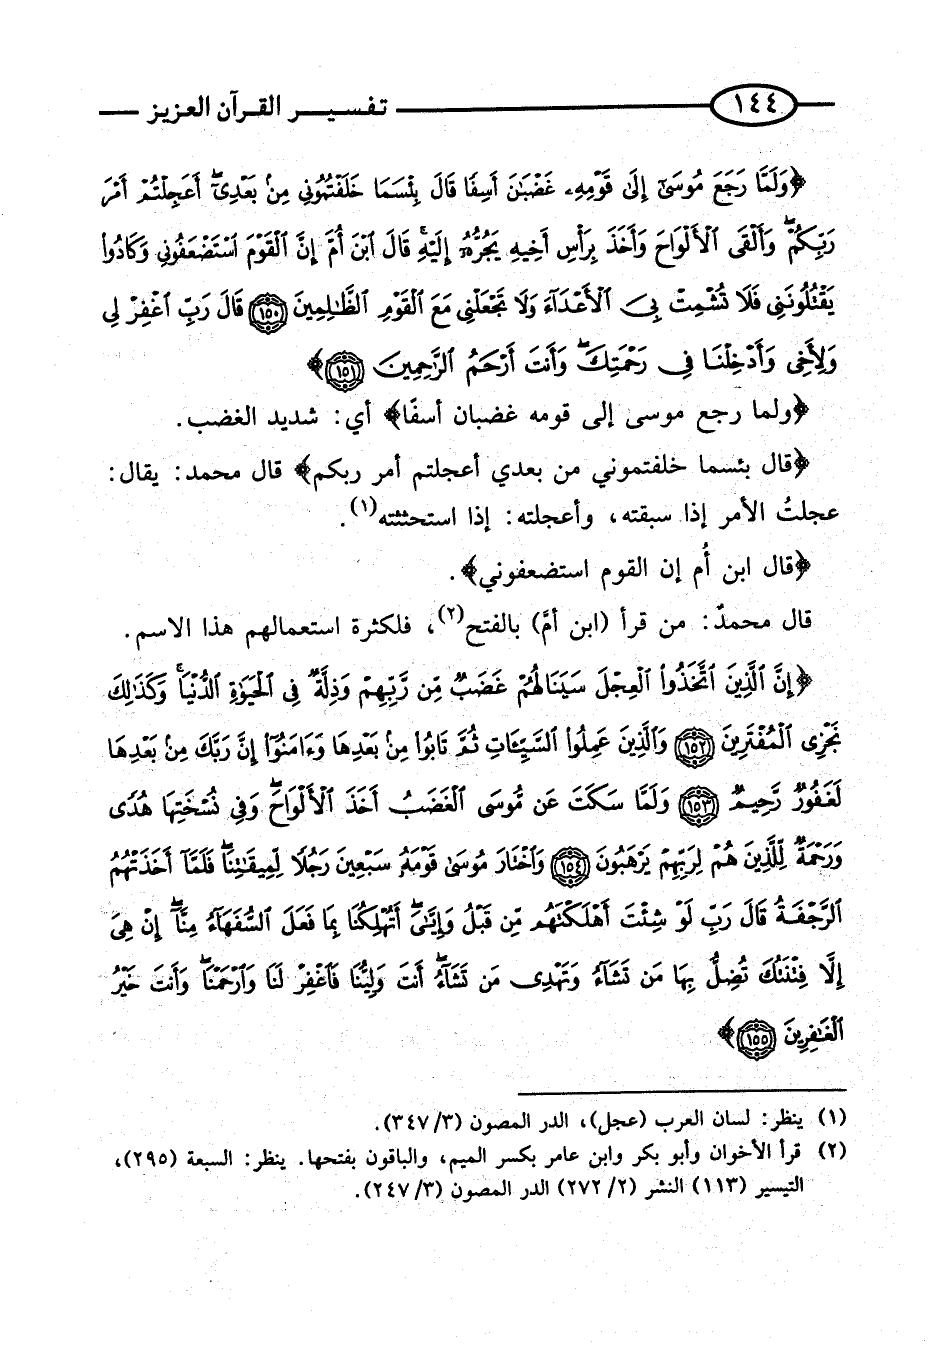 ١٤٤ تفسير القرآن العزيز
﴿وَلَمَّا رَجَعَ مُوسَىٰٓ إِلَىٰ قَوْمِهِۦ غَضْبَٰنَ أَسِفًا قَالَ بِئْسَمَا خَلَفْتُمُونِى مِنۢ بَعْدِىٓ ۖ أَعَجِلْتُمْ أَمْرَ
رَبِّكُمْ ۖ وَأَلْقَى ٱلْأَلْوَاحَ وَأَخَذَ بِرَأْسِ أَخِيهِ يَجُرُّهُۥٓ إِلَيْهِ ۚ قَالَ ٱبْنَ أُمَّ إِنَّ ٱلْقَوْمَ ٱسْتَضْعَفُونِى وَكَادُوا۟
يَقْتُلُونَنِى فَلَا تُشْمِتْ بِىَ ٱلْأَعْدَآءَ وَلَا تَجْعَلْنِى مَعَ ٱلْقَوْمِ ٱلظَّٰلِمِينَ ١٥٠ قَالَ رَبِّ ٱغْفِرْ لِى
وَلِأَخِى وَأَدْخِلْنَا فِى رَحْمَتِكَ ۖ وَأَنتَ أَرْحَمُ ٱلرَّٰحِمِينَ ١٥١﴾
﴿ولما رجع موسى إلى قومه غضبان أسفًا﴾ أي: شديد الغضب.
﴿قال بئسما خلفتموني من بعدي أعجلتم أمر ربكم﴾ قال محمد: يقال:
عجلتُ الأمر إذا سبقته، وأعجلته: إذا استحثثته(١).
﴿قال ابن أُم إن القوم استضعفوني﴾.
قال محمدٌ: من قرأ (ابن أمَّ) بالفتح(٢)، فلكثرة استعمالهم هذا الاسم.
﴿إِنَّ ٱلَّذِينَ ٱتَّخَذُوا۟ ٱلْعِجْلَ سَيَنَالُهُمْ غَضَبٌ مِّن رَّبِّهِمْ وَذِلَّةٌ فِى ٱلْحَيَوٰةِ ٱلدُّنْيَا ۚ وَكَذَٰلِكَ
نَجْزِى ٱلْمُفْتَرِينَ ١٥٢ وَٱلَّذِينَ عَمِلُوا۟ ٱلسَّيِّـَٔاتِ ثُمَّ تَابُوا۟ مِنۢ بَعْدِهَا وَءَامَنُوٓا۟ إِنَّ رَبَّكَ مِنۢ بَعْدِهَا
لَغَفُورٌ رَّحِيمٌ ١٥٣ وَلَمَّا سَكَتَ عَن مُّوسَى ٱلْغَضَبُ أَخَذَ ٱلْأَلْوَاحَ ۖ وَفِى نُسْخَتِهَا هُدًى
وَرَحْمَةٌ لِّلَّذِينَ هُمْ لِرَبِّهِمْ يَرْهَبُونَ ١٥٤ وَٱخْتَارَ مُوسَىٰ قَوْمَهُۥ سَبْعِينَ رَجُلًا لِّمِيقَٰتِنَا ۖ فَلَمَّآ أَخَذَتْهُمُ
ٱلرَّجْفَةُ قَالَ رَبِّ لَوْ شِئْتَ أَهْلَكْتَهُم مِّن قَبْلُ وَإِيَّٰىَ ۖ أَتُهْلِكُنَا بِمَا فَعَلَ ٱلسُّفَهَآءُ مِنَّآ ۖ إِنْ هِىَ
إِلَّا فِتْنَتُكَ تُضِلُّ بِهَا مَن تَشَآءُ وَتَهْدِى مَن تَشَآءُ ۖ أَنتَ وَلِيُّنَا فَٱغْفِرْ لَنَا وَٱرْحَمْنَا ۖ وَأَنتَ خَيْرُ
ٱلْغَٰفِرِينَ ١٥٥﴾
(١) ينظر: لسان العرب (عجل)، الدر المصون (٣/ ٣٤٧).
(٢) قرأ الأخوان وأبو بكر وابن عامر بكسر الميم، والباقون بفتحها. ينظر: السبعة (٢٩٥)،
التيسير (١١٣) النشر (٢/ ٢٧٢) الدر المصون (٣/ ٢٤٧).